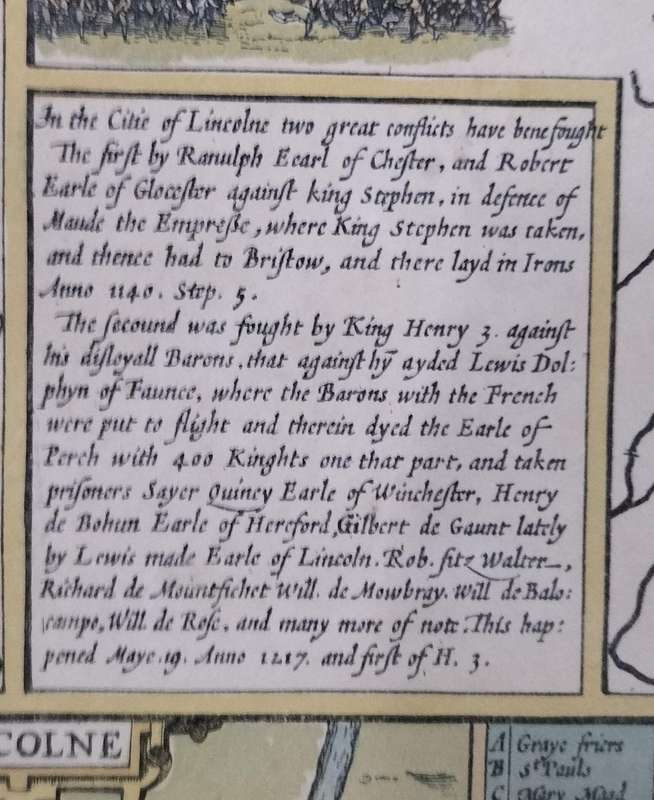 In the Citie of Lincolne two great conflicts have bene fought
The first by Ranulph Eearl of Chester, and Robert
Earle of Glocester against king Stephen, in defence of
Maude the Empresse, where King Stephen was taken,
and thence had to Bristow, and there layd in Irons
Anno 1140. Step. 5.
The secound was fought by King Henry 3. against
his disloyall Barons, that against hȳ ayded Lewis Dol:
phyn of Faunce, where the Barons with the French
were put to flight and therein dyed the Earle of
Perch with 400 Kinghts one that part, and taken
prisoners Sayer Quincy Earle of Winchester, Henry
de Bohun Earle of Hereford, Gilbert de Gaunt lately
by Lewis made Earle of Lincoln. Rob. fitz Walter,
Richard de Mountfichet Will. de Mowbray. Will de Balo:
campo, Will de Rose, and many more of note. This hap:
pened Maye .19. Anno 1217. and first of H. 3.
COLNE
A Graye friers
B St Pauls
C Mary Maad